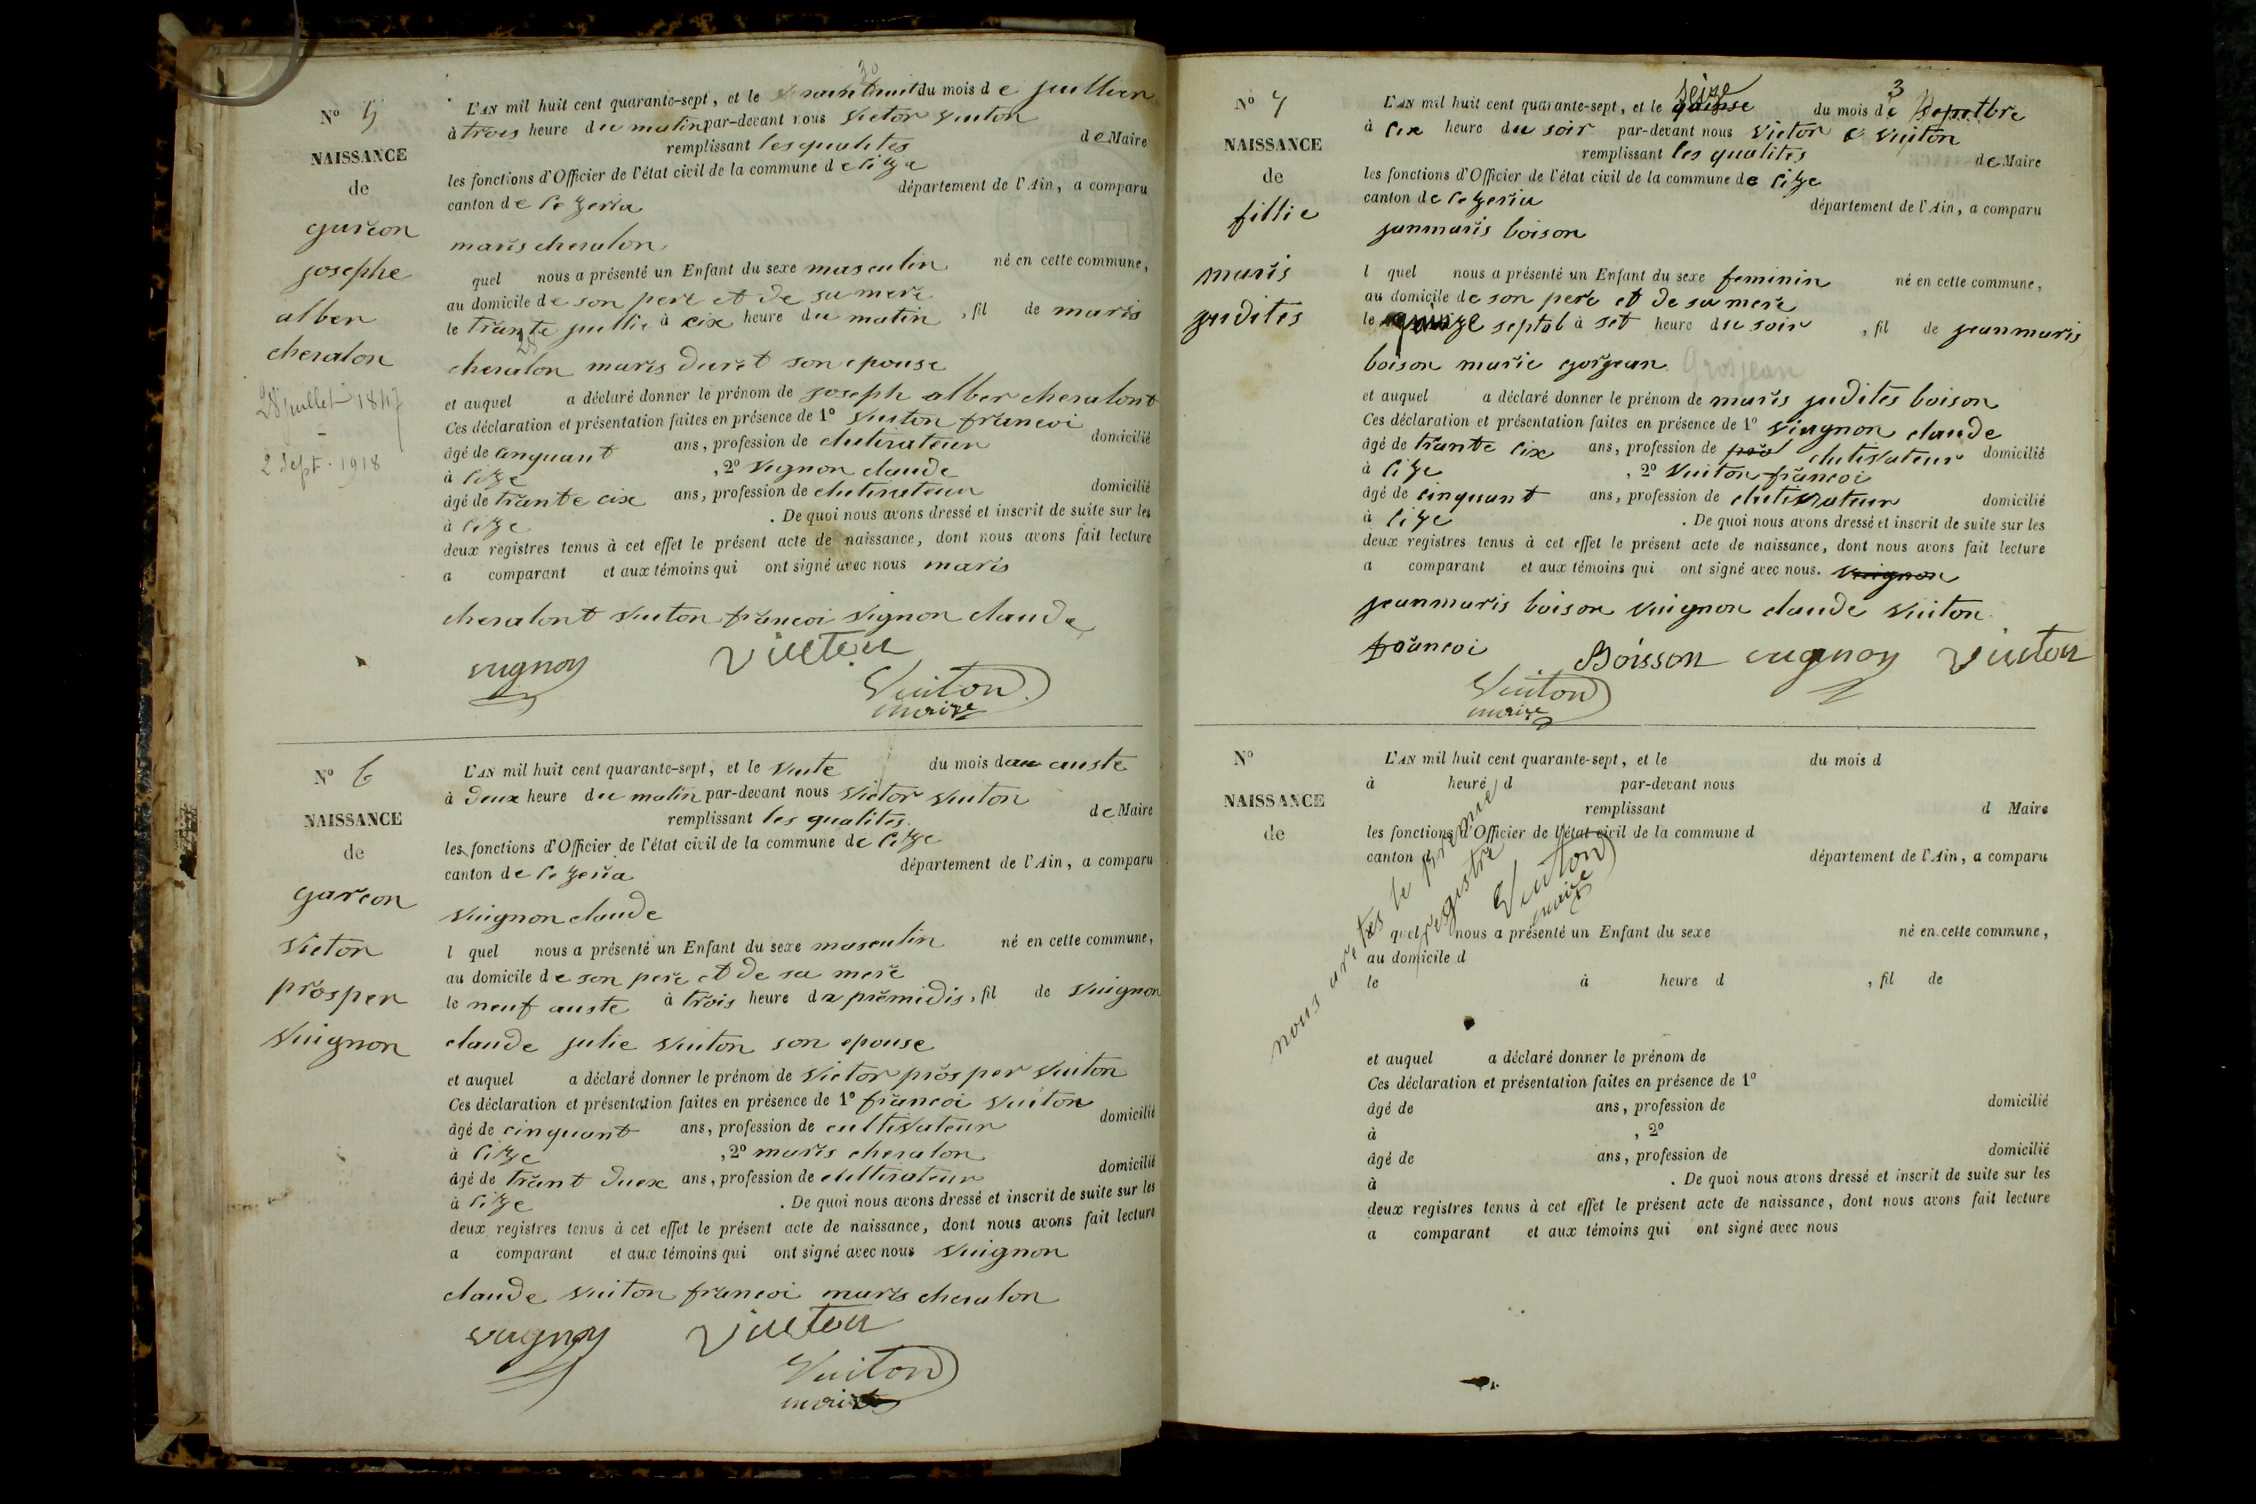 N° 5
NAISSANCE
de
garcon
josephe
alber
cheralon
28 juillet 1847
-
2 Sept. 1918
30
L'AN mil huit cent quarante-sept, et le du mois de juillier
à trois heure du matin par-devant nous victor vuiton
remplissant les qualites de Maire
les fonctions d'Officier de l'état civil de la commune de cize
canton de ce zeria département de l'Ain, a comparu
maris cheralon
quel nous a présenté un Enfant du sexe masculin né en cette commune,
au domicile de son pere et de sa mere
le trante jullie à cix heure du matin, fil de maris
28
cheralon maris duret son epouse
et auquel a déclaré donner le prénom de joseph alber cheralont
Ces déclaration et présentation faites en présence de 1° vuiton francoi
âgé de cinquant ans, profession de clutivateur domicilié
à cize, 2° vignon claude
âgé de trante cix ans, profession de clutivateur domicilié
à cize. De quoi nous avons dressé et inscrit de suite sur les
deux registres tenus à cet effet le présent acte de naissance, dont nous avons fait lecture
a comparant et aux témoins qui ont signé avec nous maris
cheralont vuiton francoi vignon claude
vugnoy viuton
Vuiton
maire
N° 6
NAISSANCE
de
garcon
victon
prosper
vuignon
L'AN mil huit cent quarante-sept, et le vinte du mois dau auste
à deux heure du matin par-devant nous victor vuiton
remplissant les qualites de Maire
les fonctions d'Officier de l'état civil de la commune de cize
canton de ce zeria département de l'Ain, a comparu
vuignon claude
l quel nous a présenté un Enfant du sexe masculin né en cette commune,
au domicile de son pere et de sa mere
le neuf auste à trois heure da premidis, fil de vuignon
claude julie vuiton son epouse
et auquel a déclaré donner le prénom de victor prosper vuiton
Ces déclaration et présentation faites en présence de 1° francoi vuiton
âgé de cinquant ans, profession de cultivateur domicilié
à cize, 2° maris cheralon
âgé de trant duex ans, profession de clultivateur domicilié
à cize. De quoi nous avons dressé et inscrit de suite sur les
deux registres tenus à cet effet le présent acte de naissance, dont nous avons fait lecture
a comparant et aux témoins qui ont signé avec nous vuignon
claude vuiton francoi maris cheralon
vugnoy viuton
Vuiton
maire
N° 7
NAISSANCE
de
fillie
maris
judites
seize 3
L'AN mil huit cent quarante-sept, et le quinse du mois de sepetbre
à cix heure du soir par-devant nous victor vuiton
remplissant les qualites de Maire
les fonctions d'Officier de l'état civil de la commune de cize
canton de ce zeria département de l'Ain, a comparu
janmaris boison
l quel nous a présenté un Enfant du sexe feminin né en cette commune,
au domicile de son pere et de sa mere
le quinze septab à set heure du soir, fil de jeanmaris
boison marie gorgean Grosjean
et auquel a déclaré donner le prénom de maris judites boison
Ces déclaration et présentation faites en présence de 1° viugnon claude
âgé de trante cix ans, profession de clutivateur domicilié
à cize, 2° vuiton francoi
âgé de cinquant ans, profession de clutivateur domicilié
à cize. De quoi nous avons dressé et inscrit de suite sur les
deux registres tenus à cet effet le présent acte de naissance, dont nous avons fait lecture
a comparant et aux témoins qui ont signé avec nous. vuignon
jeanmaris boison vuignon claude vuiton
francoi Boisson vugnoy viuton
Vuiton
maire
N°
NAISSANCE
de
L'AN mil huit cent quarante-sept, et le du mois d
à heure d par-devant nous
remplissant d Maire
les fonctions d'Officier de l'état civil de la commune d
canton d département de l'Ain, a comparu
quel nous a présenté un Enfant du sexe né en cette commune,
au domicile d
le à heure d, fil de
nous aretes le premie
registre
Vuiton
maire
et auquel a déclaré donner le prénom de
Ces déclaration et présentation faites en présence de 1°
âgé de ans, profession de domicilié
à, 2°
âgé de ans, profession de domicilié
à. De quoi nous avons dressé et inscrit de suite sur les
deux registres tenus à cet effet le présent acte de naissance, dont nous avons fait lecture
a comparant et aux témoins qui ont signé avec nous